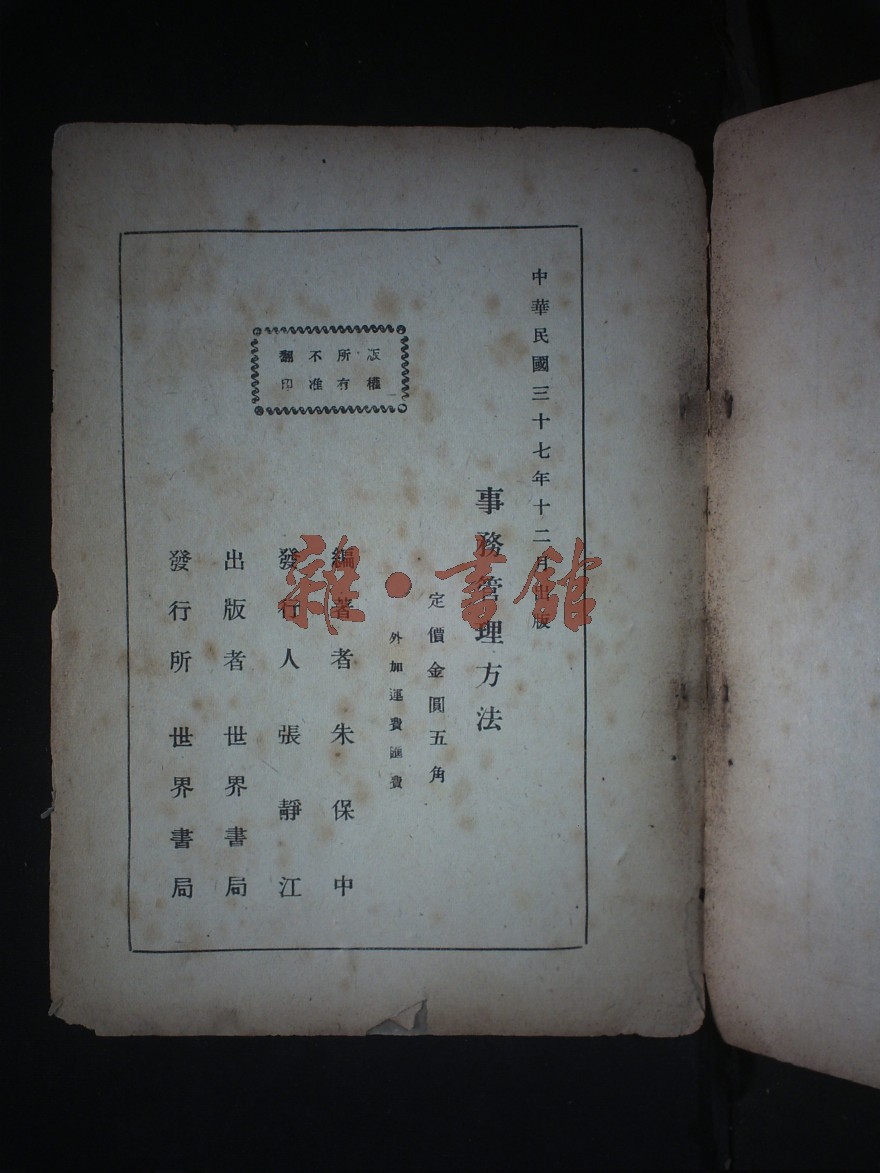 中華民國三十七年十二月出版
事務管理方法
定價金圓五角
外加運費匯費
版權
所有
不准
翻印
編著者 朱保中
發行人 張靜江
出版者 世界書局
發行所 世界書局
雜·書館